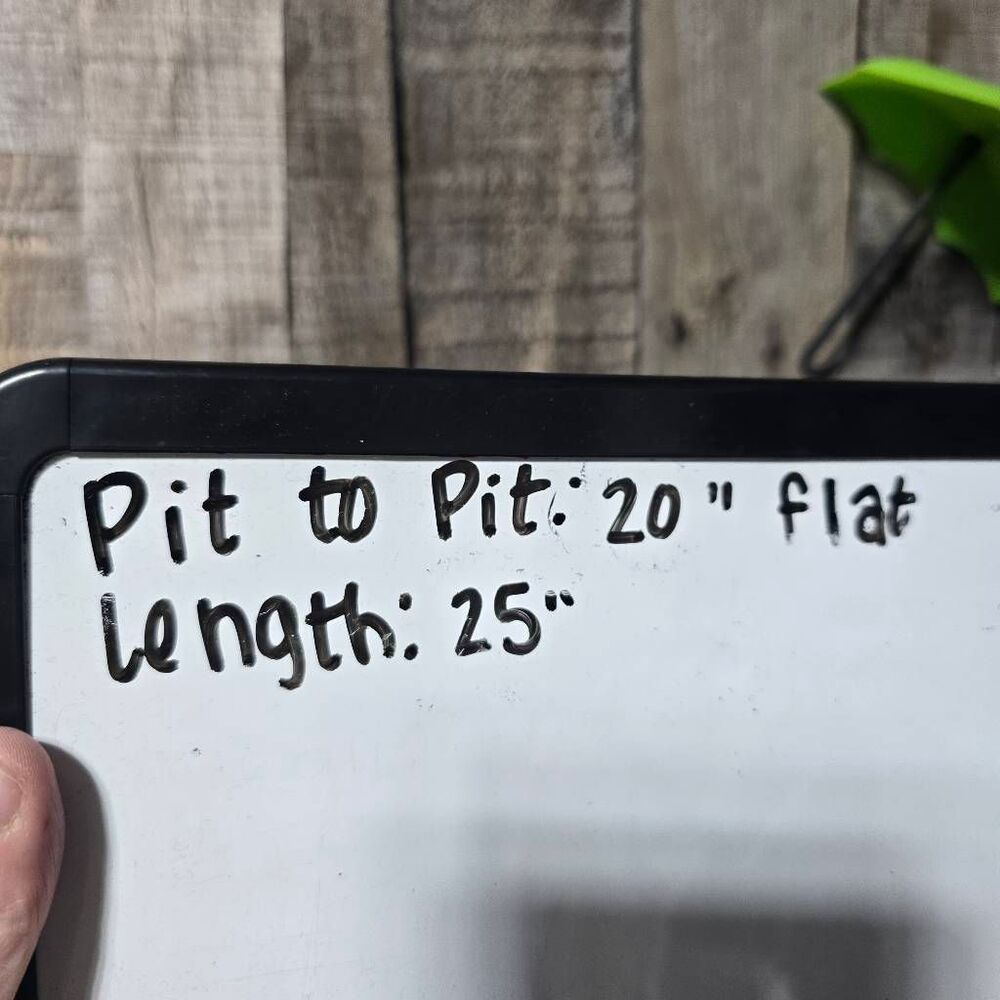 Pit to Pit: 20" flat
Length: 25"